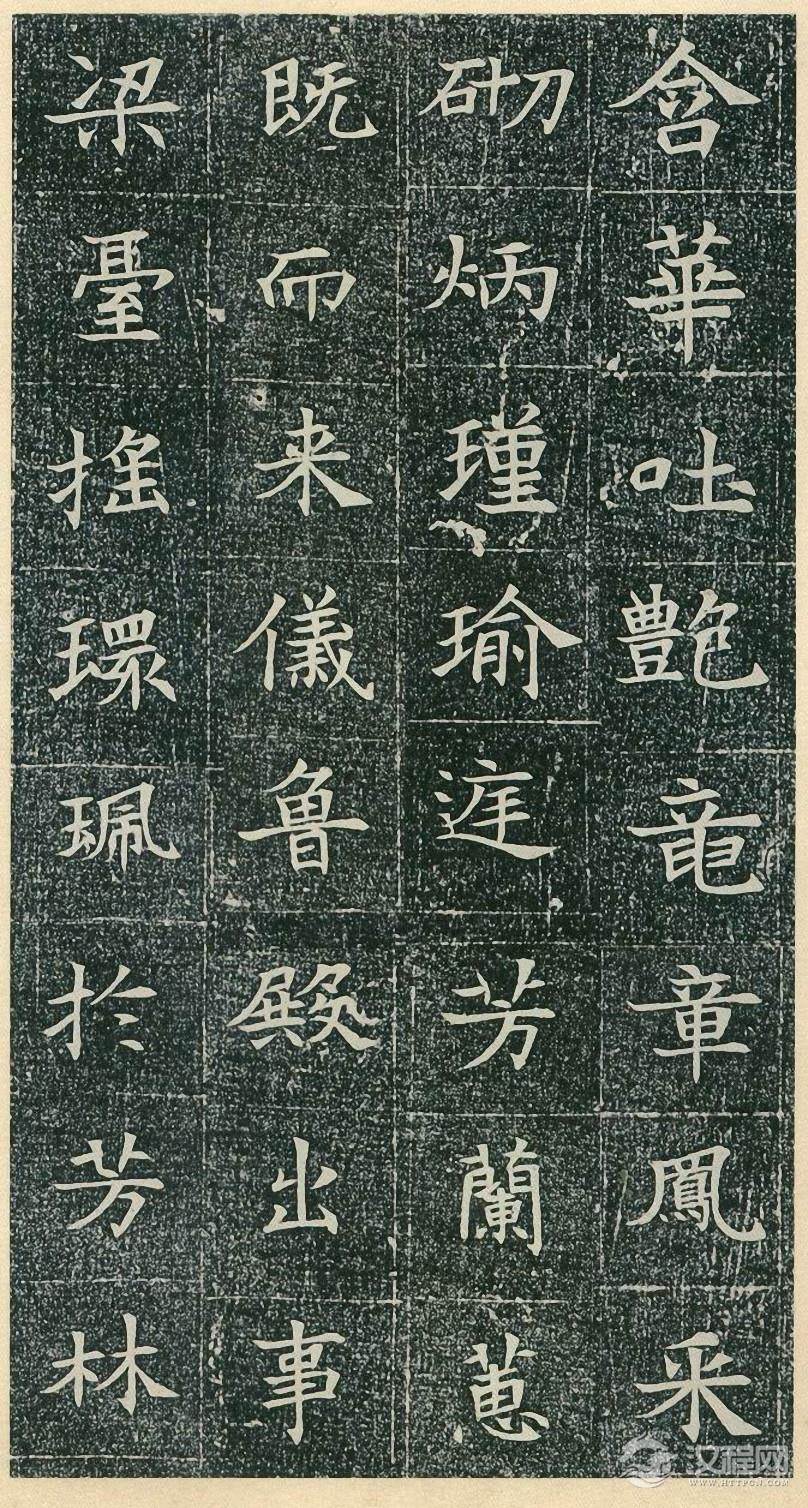 含華吐艶竜章鳳采
砌炳瑾瑜庭芳蘭蕙
既而来儀魯殿出事
梁臺搖環珮於芳林
汉程网
WWW.HTTPCN.COM